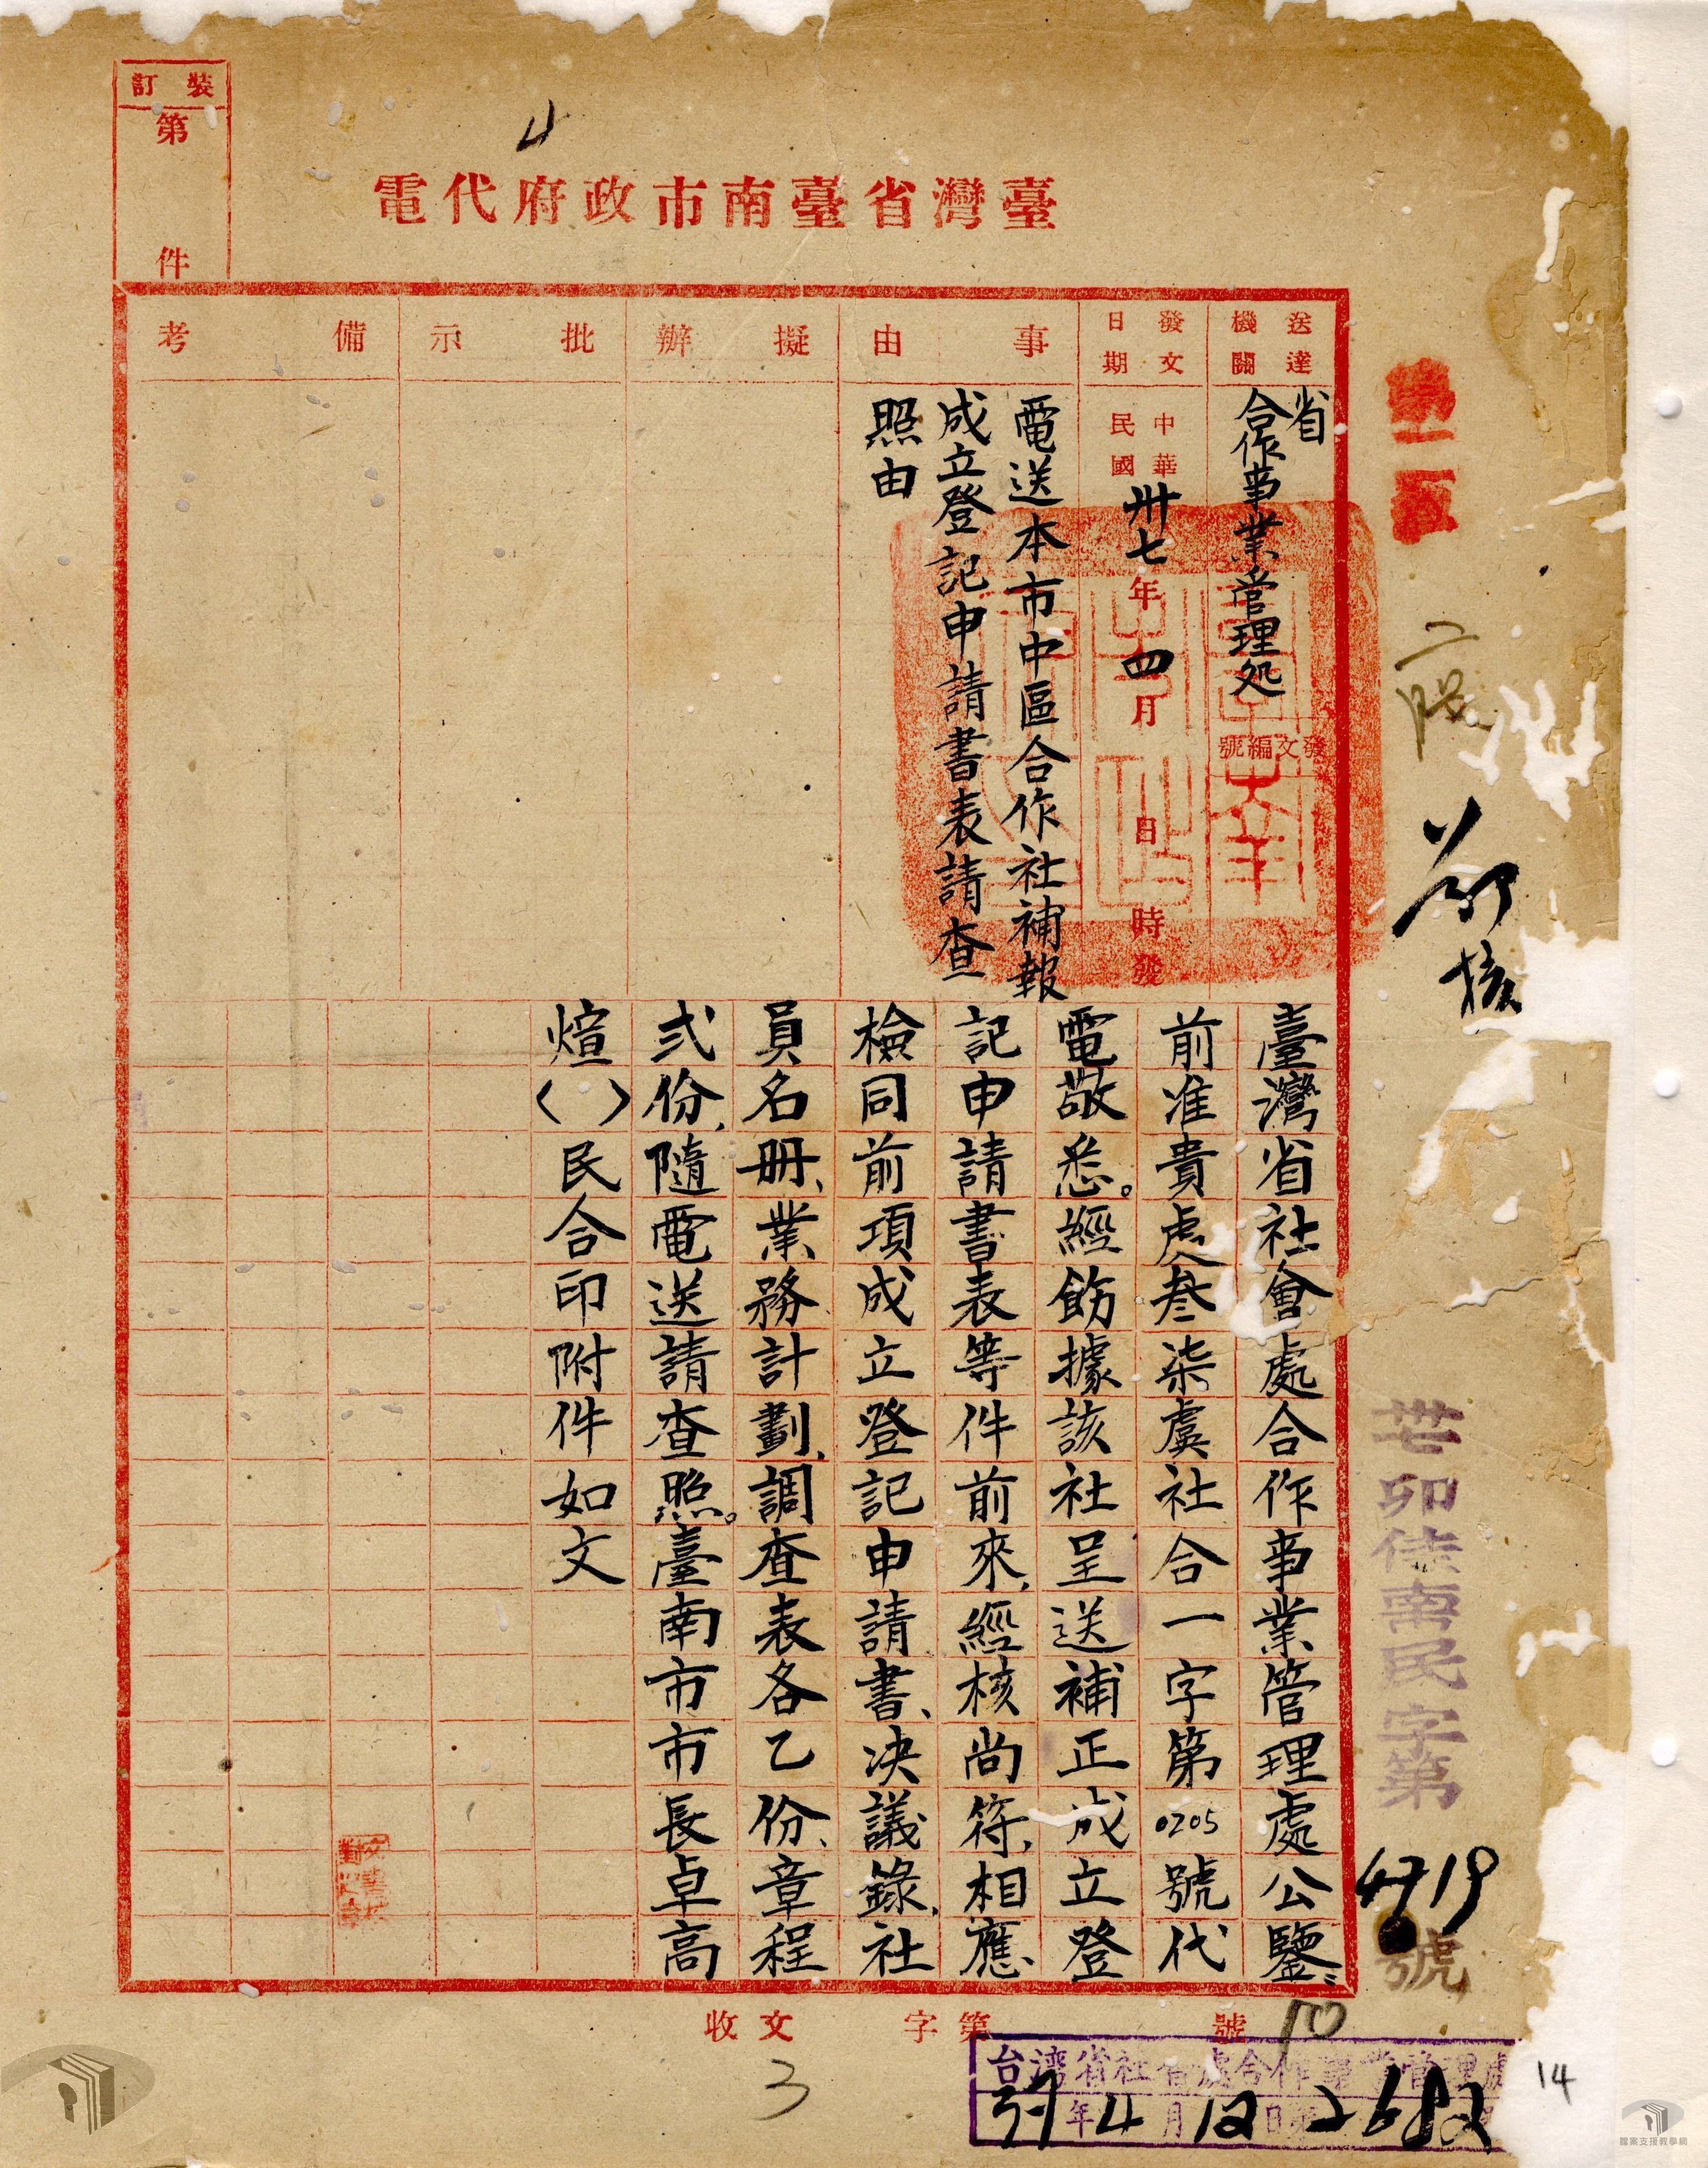 裝訂
第
件
4
臺灣省臺南市政府代電
送達機關
省
合作事業管理処
發文編號
發文日期
中華民國卅七年四月 日 時發
事由
電送本市中區合作社補報
成立登記申請書表請查
照由
擬辦
批示
備考
臺灣省社會處合作事業管理處公鑒:
前准貴處叁柒虞社合一字第0205號代
電敬悉。經飭據該社呈送補正成立登
記申請書表等件前來,經核尚符,相應
檢同前項成立登記申請書、決議錄、社
員名冊、業務計劃、調查表各乙份、章程
弍份,隨電送請查照。臺南市市長卓高
煊( )民合印附件如文
卅七卯佳南民字第
4719
號
核
收文
字第
號
3
台湾省社會處合作事業管理處
37年4月12日
14
檔案支援教學網